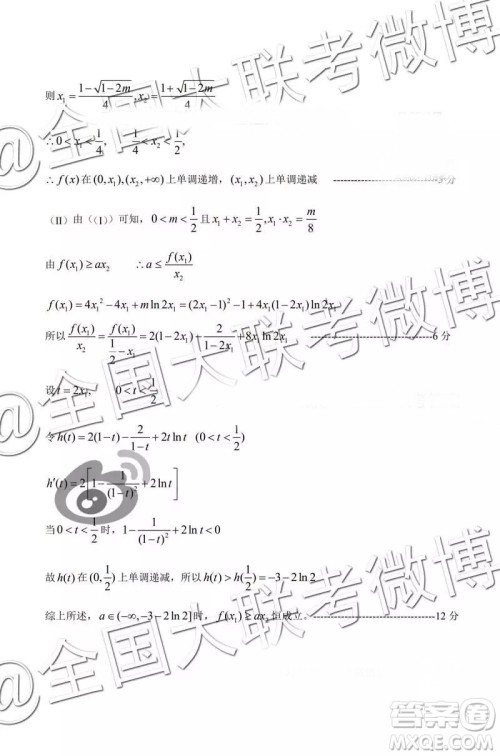 则 x₁ = (1-√(1-2m))/4, x₂ = (1+√(1-2m))/4
∴ 0 < x₁ < 1/4, 1/4 < x₂ < 1/2,
∴ f(x) 在 (0, x₁), (x₂, +∞) 上单调递增, (x₁, x₂) 上单调递减
(II) 由 ((I)) 可知, 0 < m < 1/2 且 x₁ + x₂ = 1/2, x₁·x₂ = m/8
由 f(x₁) ≥ ax₂ ∴ a ≤ f(x₁)/x₂
f(x₁) = 4x₁² - 4x₁ + m ln 2x₁ = (2x₁ - 1)² - 1 + 4x₁(1 - 2x₁) ln 2x₁
所以 f(x₁)/x₂ = f(x₁)/(1/2 - x₁) = 2(1 - 2x₁) + 2/(1 - 2x₁) + 8x₁ ln 2x₁ --------6 分
设 t = 2x₁, 0 < t > 1/2
令 h(t) = 2(1 - t) - 2/(1 - t) + 2t ln t (0 < t < 1/2)
h′(t) = 2[1 - 1/(1 - t)² + 2 ln t]
当 0 < t < 1/2 时, 1 - 1/(1 - t)² + 2 ln t < 0
故 h(t) 在 (0, 1/2) 上单调递减, 所以 h(t) > h(1/2) = -3 - 2 ln 2
综上所述, a ∈ (-∞, -3 - 2 ln 2] 时, f(x₁) ≥ ax₂ 恒成立。--------12 分
@全国大联考微博
@全国大联考微博
@全国大联考微博
答案圈
MXQE.COM